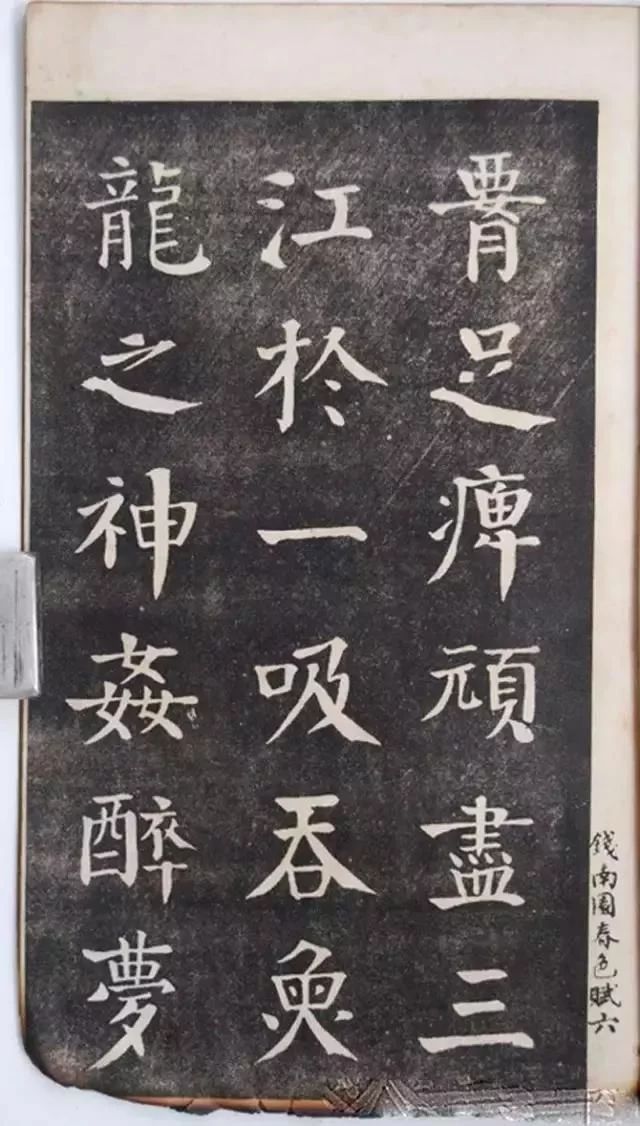 錢南園春色賦六
腰足痺頑盡三
江於一吸吞魚
龍之神姦醉夢